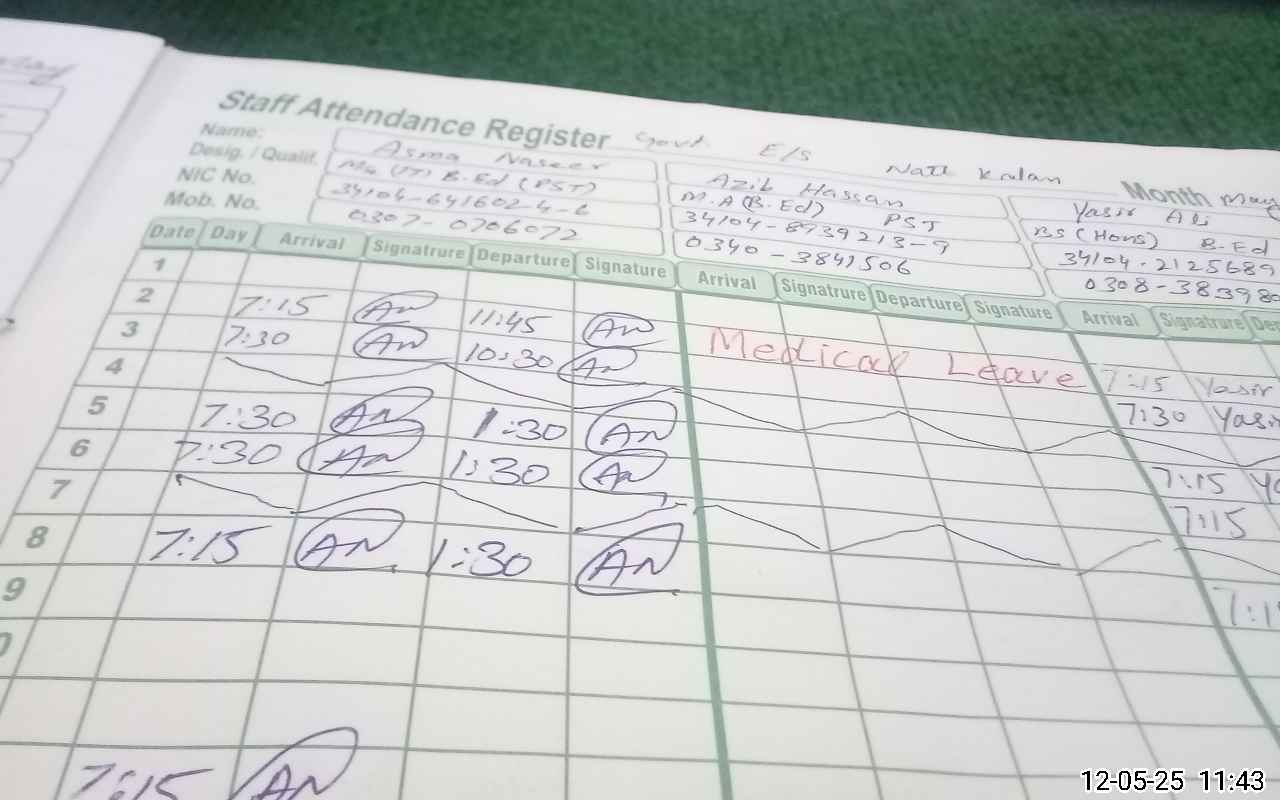 Staff Attendance Register Govt. E/S Natt Kalan Month May
Name: Asma Naseer Azib Hassan Yasir Ali
Desig. / Qualif. B.Ed (PST) M.A (B.Ed) PST BS (Hons) B.Ed
NIC No. 34104-641602-4-6 34104-8939213-9 34104-2125689
Mob. No. 0307-0706072 0340-3841506 0308-38398
Date Day Arrival Signatrure Departure Signature Arrival Signatrure Departure Signature Arrival Signatrure
1
2 7:15 AN 11:45 AN Medical Leave 7:15 Yasir
3 7:30 AN 10:30 AN 7:30 Yasir
4
5 7:30 AN 1:30 AN 7:15
6 7:30 AN 1:30 AN 7:15
7
8 7:15 AN 1:30 AN 7:1
9
0
7:15 AN
12-05-25 11:43